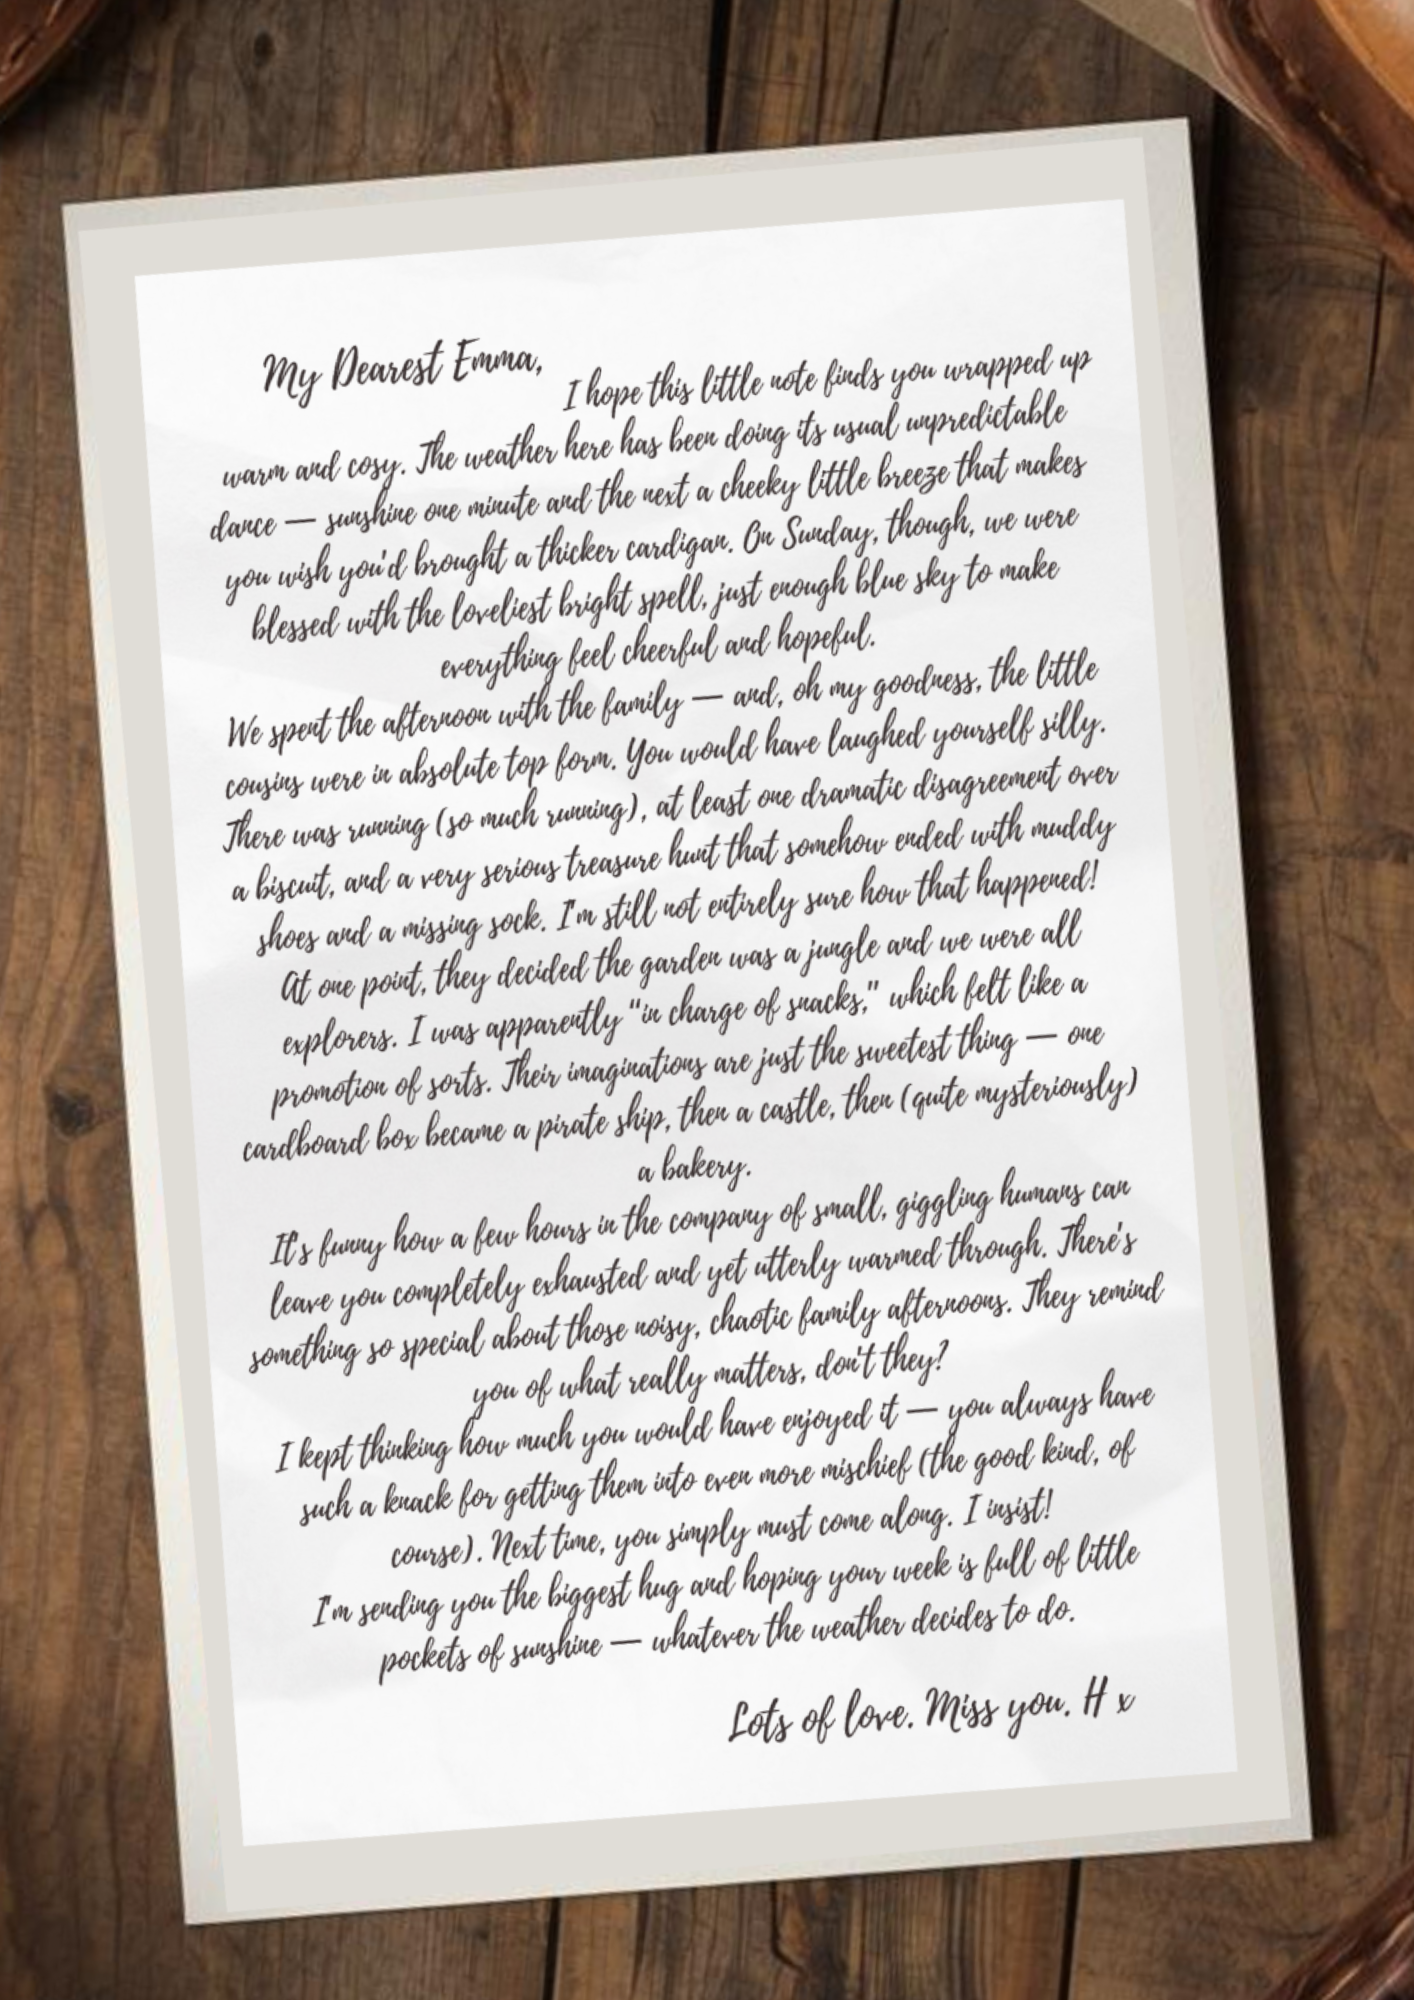 My Dearest Emma,
I hope this little note finds you wrapped up
warm and cosy. The weather here has been doing its usual unpredictable
dance — sunshine one minute and the next a cheeky little breeze that makes
you wish you'd brought a thicker cardigan. On Sunday, though, we were
blessed with the loveliest bright spell, just enough blue sky to make
everything feel cheerful and hopeful.
We spent the afternoon with the family — and, oh my goodness, the little
cousins were in absolute top form. You would have laughed yourself silly.
There was running (so much running), at least one dramatic disagreement over
a biscuit, and a very serious treasure hunt that somehow ended with muddy
shoes and a missing sock. I'm still not entirely sure how that happened!
At one point, they decided the garden was a jungle and we were all
explorers. I was apparently "in charge of snacks," which felt like a
promotion of sorts. Their imaginations are just the sweetest thing — one
cardboard box became a pirate ship, then a castle, then (quite mysteriously)
a bakery.
It's funny how a few hours in the company of small, giggling humans can
leave you completely exhausted and yet utterly warmed through. There's
something so special about those noisy, chaotic family afternoons. They remind
you of what really matters, don't they?
I kept thinking how much you would have enjoyed it — you always have
such a knack for getting them into even more mischief (the good kind, of
course). Next time, you simply must come along. I insist!
I'm sending you the biggest hug and hoping your week is full of little
pockets of sunshine — whatever the weather decides to do.
Lots of love. Miss you. H x